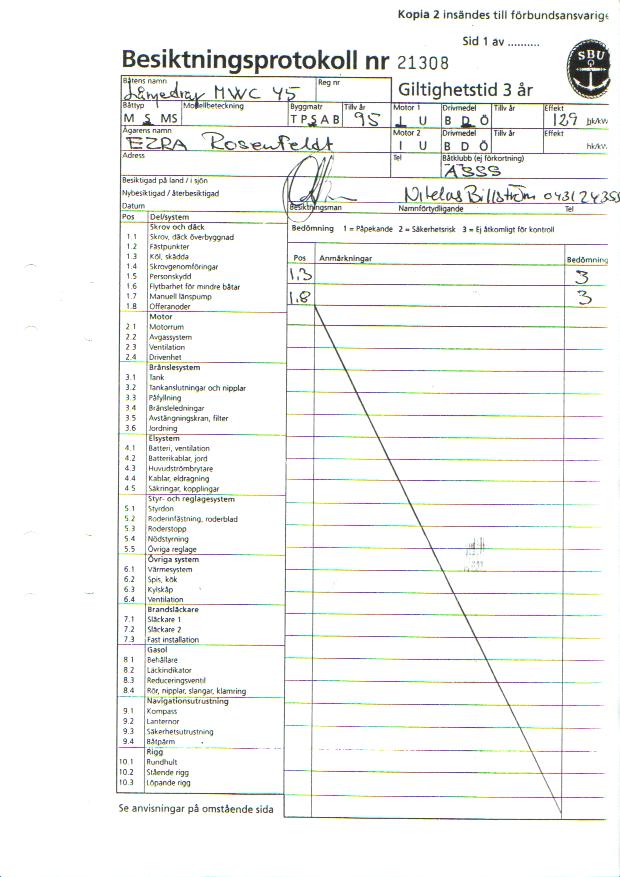 Kopia 2 insändes till förbundsansvarige
Sid 1 av ..........
Besiktningsprotokoll nr 21308
SBU
Båtens namn
Reg nr
Giltighetstid 3 år
MWC 45
Båttyp
Modellbeteckning
Byggmatr
Tillv år
Motor 1
Drivmedel
Tillv år
Effekt
M S MS
T P S A B
95
I U
B D Ö
129 hk/kW
Ägarens namn
Motor 2
Drivmedel
Tillv år
Effekt
EZRA Rosenfeldt
I U
B D Ö
hk/kW
Adress
Tel
Båtklubb (ej förkortning)
ASSS
Besiktigad på land / i sjön
Nybesiktigad / återbesiktigad
Billström
Datum
Besiktningsman
Namnförtydligande
Tel
Pos Del/system
Bedömning 1 = Påpekande 2 = Säkerhetsrisk 3 = Ej åtkomligt för kontroll
Pos Anmärkningar Bedömning
1.3 3
1.8 3
Skrov och däck
1.1 Skrov, däck överbyggnad
1.2 Fästpunkter
1.3 Köl, skädda
1.4 Skrovgenomföringar
1.5 Personskydd
1.6 Flytbarhet för mindre båtar
1.7 Manuell länspump
1.8 Offeranoder
Motor
2.1 Motorrum
2.2 Avgassystem
2.3 Ventilation
2.4 Drivenhet
Bränslesystem
3.1 Tank
3.2 Tankanslutningar och nipplar
3.3 Påfyllning
3.4 Bränsleledningar
3.5 Avstängningskran, filter
3.6 Jordning
Elsystem
4.1 Batteri, ventilation
4.2 Batterikablar, jord
4.3 Huvudströmbrytare
4.4 Kablar, eldragning
4.5 Säkringar, kopplingar
Styr- och reglagesystem
5.1 Styrdon
5.2 Roderinfästning, roderblad
5.3 Roderstopp
5.4 Nödstyrning
5.5 Övriga reglage
Övriga system
6.1 Värmesystem
6.2 Spis, kök
6.3 Kylskåp
6.4 Ventilation
Brandsläckare
7.1 Släckare 1
7.2 Släckare 2
7.3 Fast installation
Gasol
8.1 Behållare
8.2 Läckindikator
8.3 Reduceringsventil
8.4 Rör, nipplar, slangar, klamring
Navigationsutrustning
9.1 Kompass
9.2 Lanternor
9.3 Säkerhetsutrustning
9.4 Båtpärm
Rigg
10.1 Rundhult
10.2 Stående rigg
10.3 Löpande rigg
Se anvisningar på omstående sida